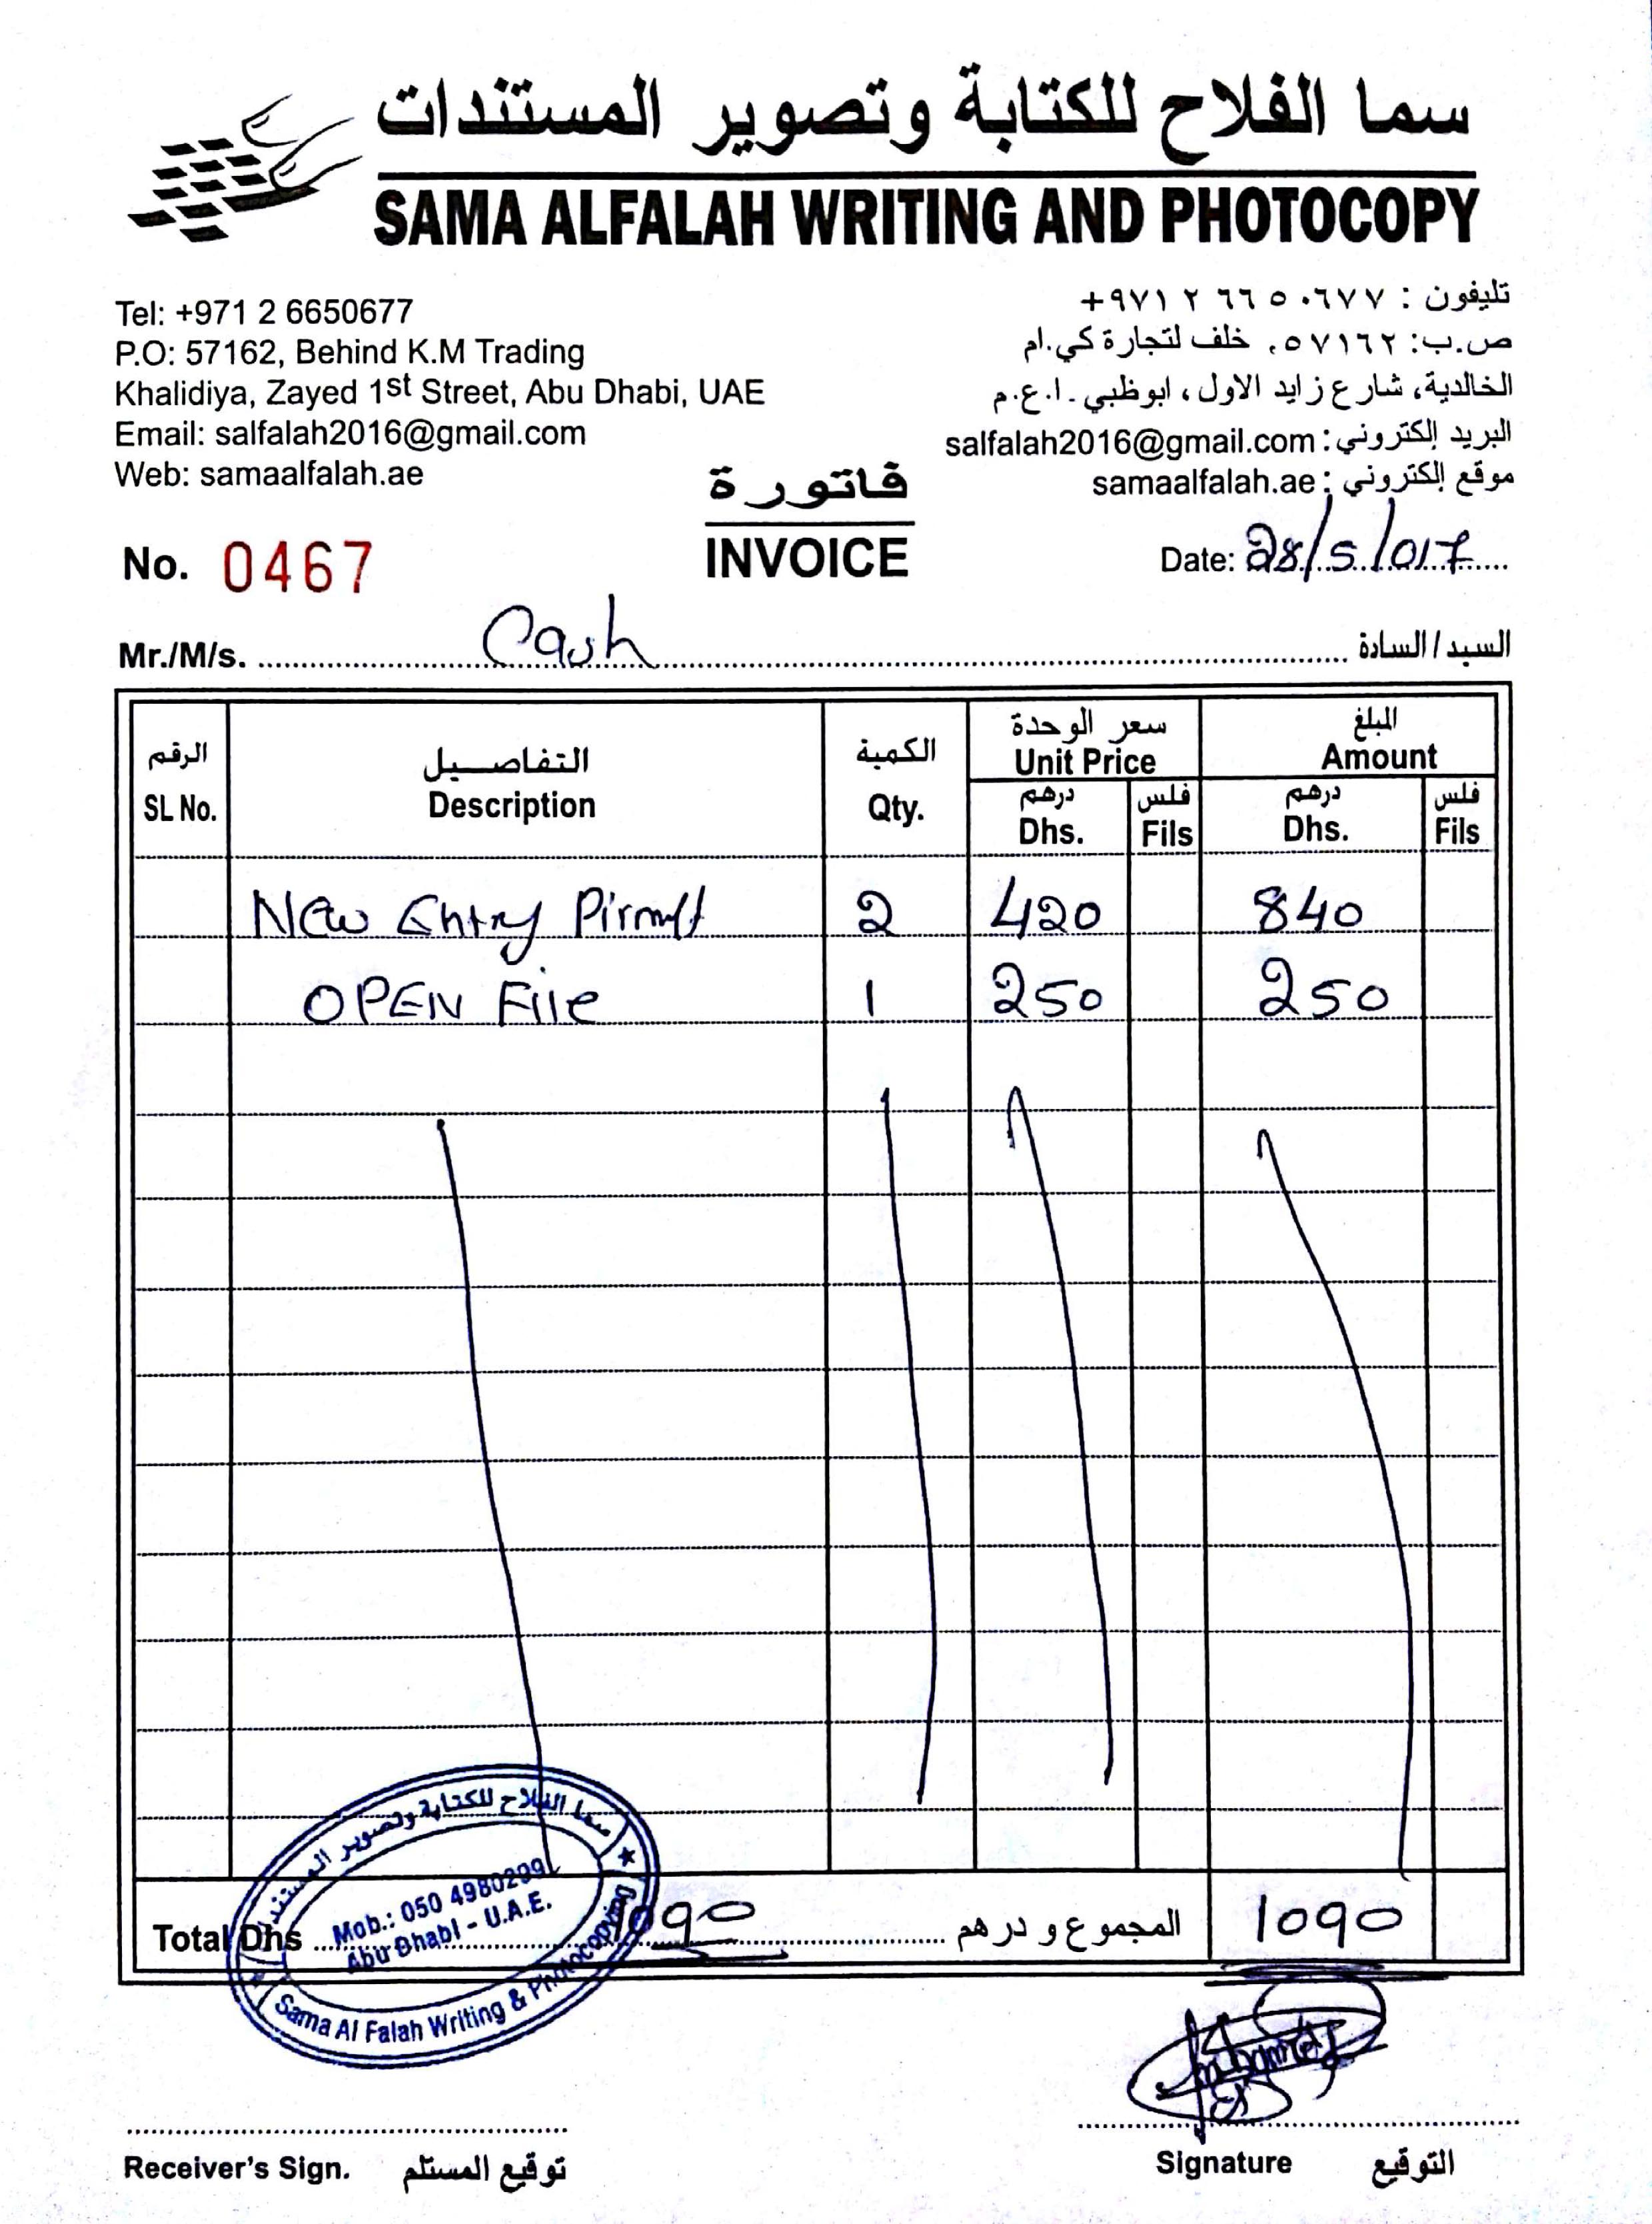 سما الفلاح للكتابة وتصوير المستندات
SAMA ALFALAH WRITING AND PHOTOCOPY
Tel: +971 2 6650677
P.O: 57162, Behind K.M Trading
Khalidiya, Zayed 1st Street, Abu Dhabi, UAE
Email: salfalah2016@gmail.com
Web: samaalfalah.ae
تليفون : ٦٦٥٠٦٧٧ ٢ ٩٧١+
ص.ب: ٥٧١٦٢، خلف لتجارة كي.ام
الخالدية، شارع زايد الاول، ابوظبي ـ ا.ع.م
البريد إلكتروني: salfalah2016@gmail.com
موقع إلكتروني: samaalfalah.ae
فاتورة
INVOICE
No. 0467
Date: 28/5/017
Mr./M/s. Cash السيد/السادة
الرقم التفاصيل الكمية سعر الوحدة المبلغ
SL No. Description Qty. Unit Price Amount
درهم فلس درهم فلس
Dhs. Fils Dhs. Fils
New Entry Pirmit 2 420 840
OPEN File 1 250 250
Total Dhs 1090 المجموع و درهم 1090
سما الفلاح للكتابة وتصوير المستندات
Mob.: 050 4980299
Abu Dhabi - U.A.E.
Sama Al Falah Writing & Photocopying
Receiver's Sign. توقيع المستلم
Signature التوقيع